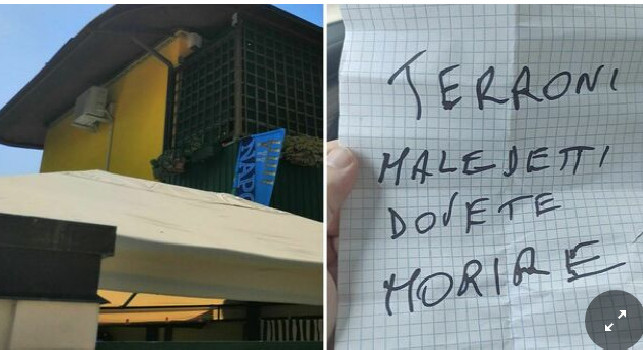 NAPO
TERRONI
MALEDETTI
DOVETE
MORIRE